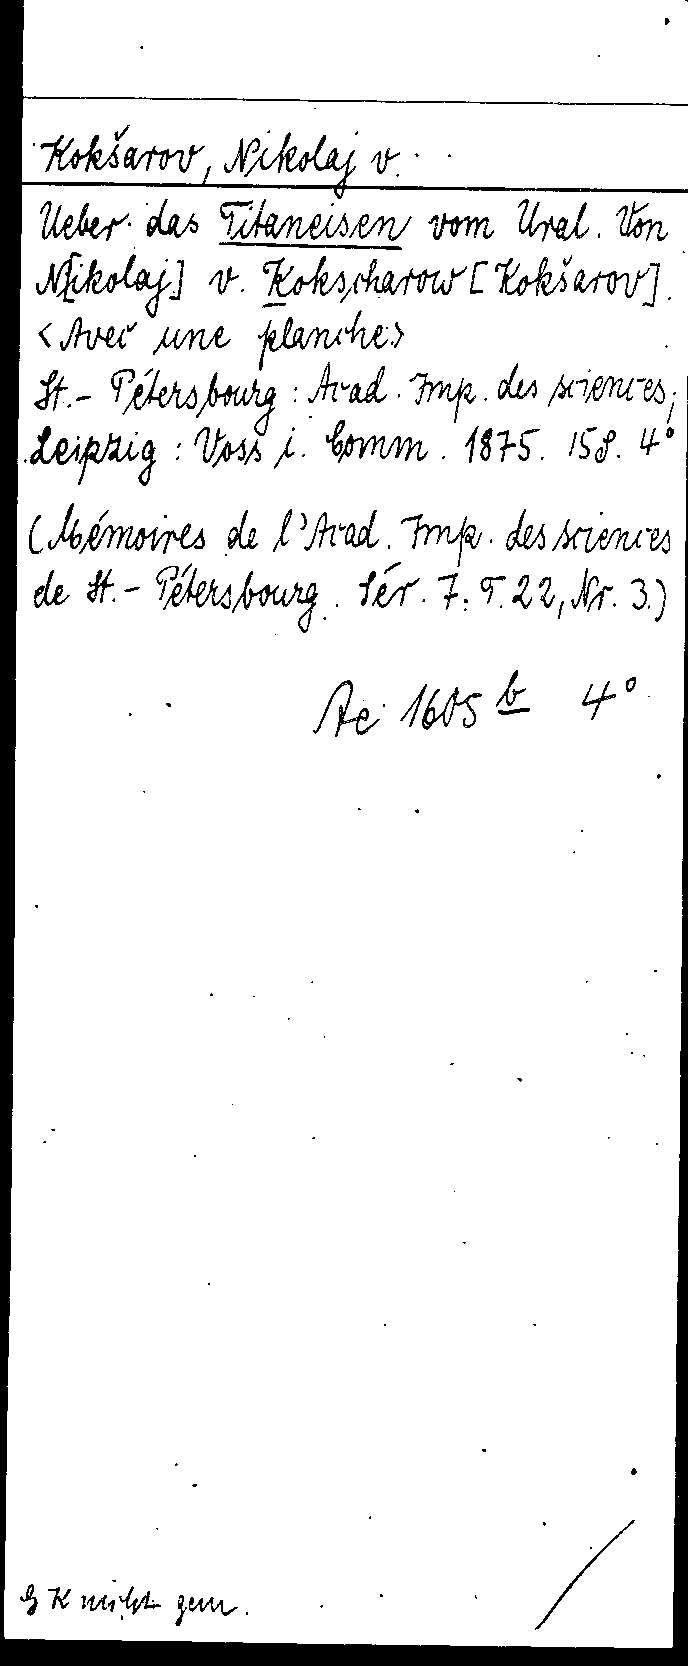 Kokšarov, Nikolaj v.
Ueber das Titaneisen vom Ural. Von
N[ikolaj] v. Kokscharow [Kokšarov].
<Avec une planche>
St.-Pétersbourg: Acad. Imp. des sciences;
Leipzig: Voss i. Comm. 1875. 15 S. 4°
(Mémoires de l'Acad. Imp. des sciences
de St.-Pétersbourg. Sér. 7. T. 22, Nr. 3.)
Ac 1605 b 4°
G K nicht gem.